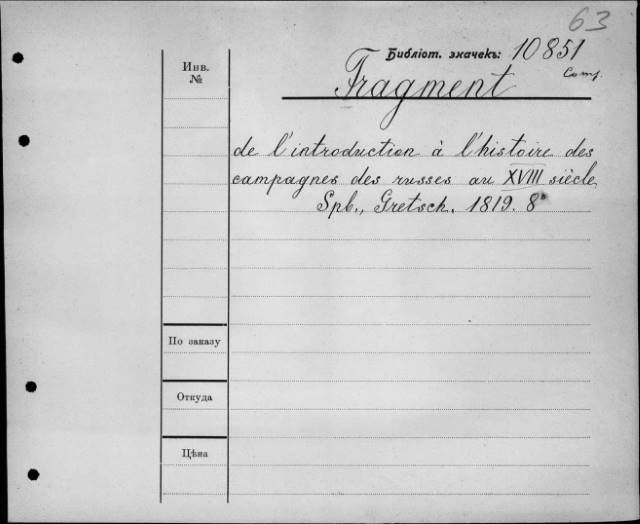 63
Библіот. значекъ: 10851
Comp.
Инв.
№
Fragment
de l'introduction à l'histoire des
campagnes des russes au XVIII siècle
Spb., Gretsch. 1819. 8°
По заказу
Откуда
Цѣна